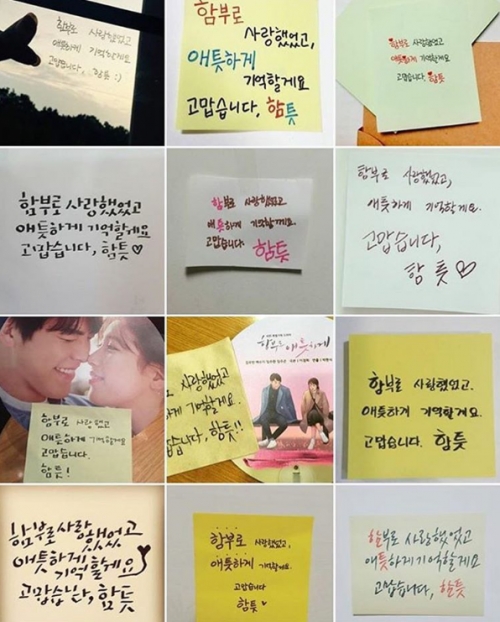 함부로 사랑했었고
애틋하게 기억할게요
고맙습니다, 함틋 :)
함부로
사랑했었고,
애틋하게
기억할게요
고맙습니다, 함틋
함부로 사랑했었고
애틋하게 기억할게요
고맙습니다. 함틋
함부로 사랑했었고
애틋하게 기억할게요
고맙습니다, 함틋♡
함부로 사랑했었고
애틋하게 기억할게요.
고맙습니다. 함틋
함부로 사랑했었고,
애틋하게 기억할게요.
고맙습니다,
함틋♡
함부로 사랑했었고
애틋하게 기억할게요
고맙습니다.
함틋!
사랑했었고
하게 기억할게요.
습니다, 함틋!!
함부로 애틋하게
함부로 사랑했었고.
애틋하게 기억할게요.
고맙습니다. 함틋
함부로 사랑했었고
애틋하게 기억할게요
고맙습니다, 함틋
함부로 사랑했었고,
애틋하게 기억할게요.
고맙습니다
함틋♥
함부로 사랑했었고
애틋하게 기억할게요
고맙습니다, 함틋